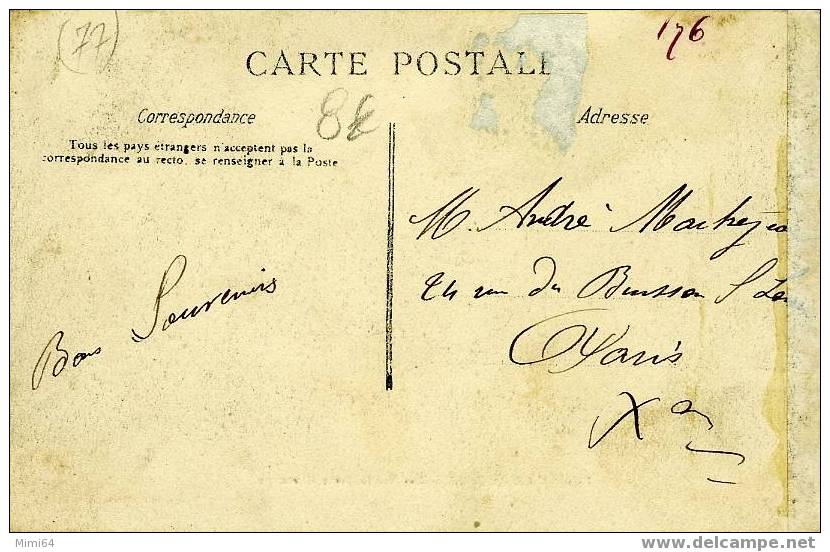 (77)
176
CARTE POSTALE
Correspondance
8€
Adresse
Tous les pays étrangers n'acceptent pas la
correspondance au recto, se renseigner à la Poste
M. André
24 rue du Buisson S Lou
Paris
X
Bons Souvenirs
Mimi64
delcampe.net